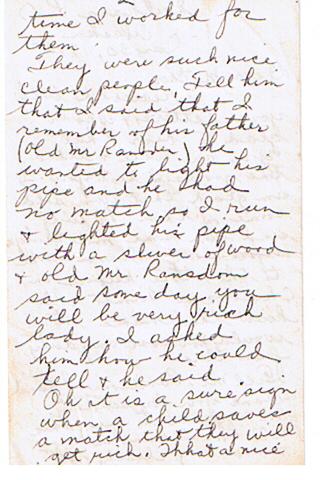 time I worked for
them.
They were such nice
clean people, Tell him
that I said that I
remember of his father
(old Mr Ransder) he
wanted to light his
pipe and he had
no match so I run
& lighted his pipe
with a sliver of wood
& old Mr. Ransdom
said some day you
will be very rich
lady. I asked
him how he could
tell & he said
Oh it is a sure sign
when a child saves
a match that they will
get rich. Thhat a nice